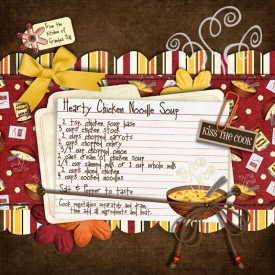 From the
Kitchen of
Grandma Dull
Hearty Chicken Noodle Soup
2 tsp. chicken soup base
3 cups chicken stock
2 cups chopped carrots
2 cups chopped celery
3/4 cup chopped onion
2 cans cream of chicken soup
1/2 cup canned milk or 1 cup whole milk
2 cups diced chicken
4 cups cooked noodles
Salt & Pepper to taste
Cook vegetables separately and drain.
Then add all ingredients and heat.
KISS THE COOK